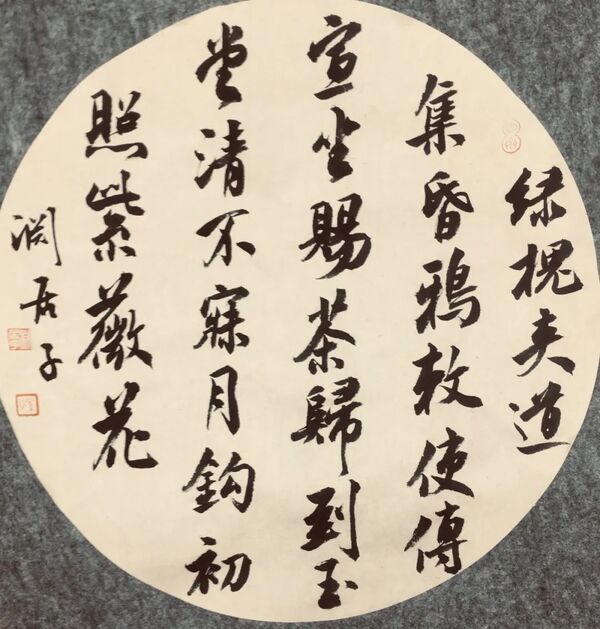 绿槐夹道
集昏鸦敕使傳
宣坐賜茶歸到玉
堂清不寐月鈎初
照紫薇花
澗居子